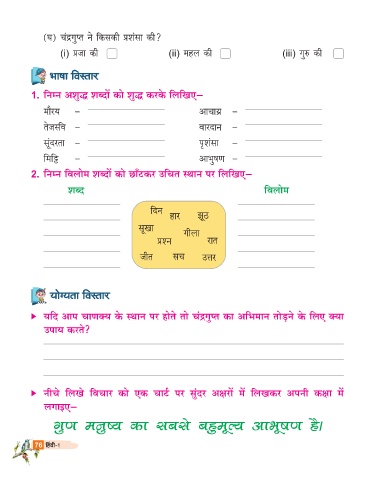 (घ) चंद्रगुप्त ने किसकी प्रशंसा की?
(i) प्रजा की (ii) महल की (iii) गुरु की
भाषा विस्तार
1. निम्न अशुद्ध शब्दों को शुद्ध करके लिखिए–
मौरय – आचाय्र –
तेजसवि – वारदान –
सूंदरता – पृशंसा –
मिट्टि – आभुषण –
2. निम्न विलोम शब्दों को छाँटकर उचित स्थान पर लिखिए–
शब्द विलोम
दिन हार झूठ
सूखा गीला
प्रश्न रात
जीत सच उत्तर
योग्यता विस्तार
यदि आप चाणक्य के स्थान पर होते तो चंद्रगुप्त का अभिमान तोड़ने के लिए क्या
उपाय करते?
नीचे लिखे विचार को एक चार्ट पर सुंदर अक्षरों में लिखकर अपनी कक्षा में
लगाइए–
गुण मनुष्य का सबसे बहुमूल्य आभूषण है।
76 हिंदी-1